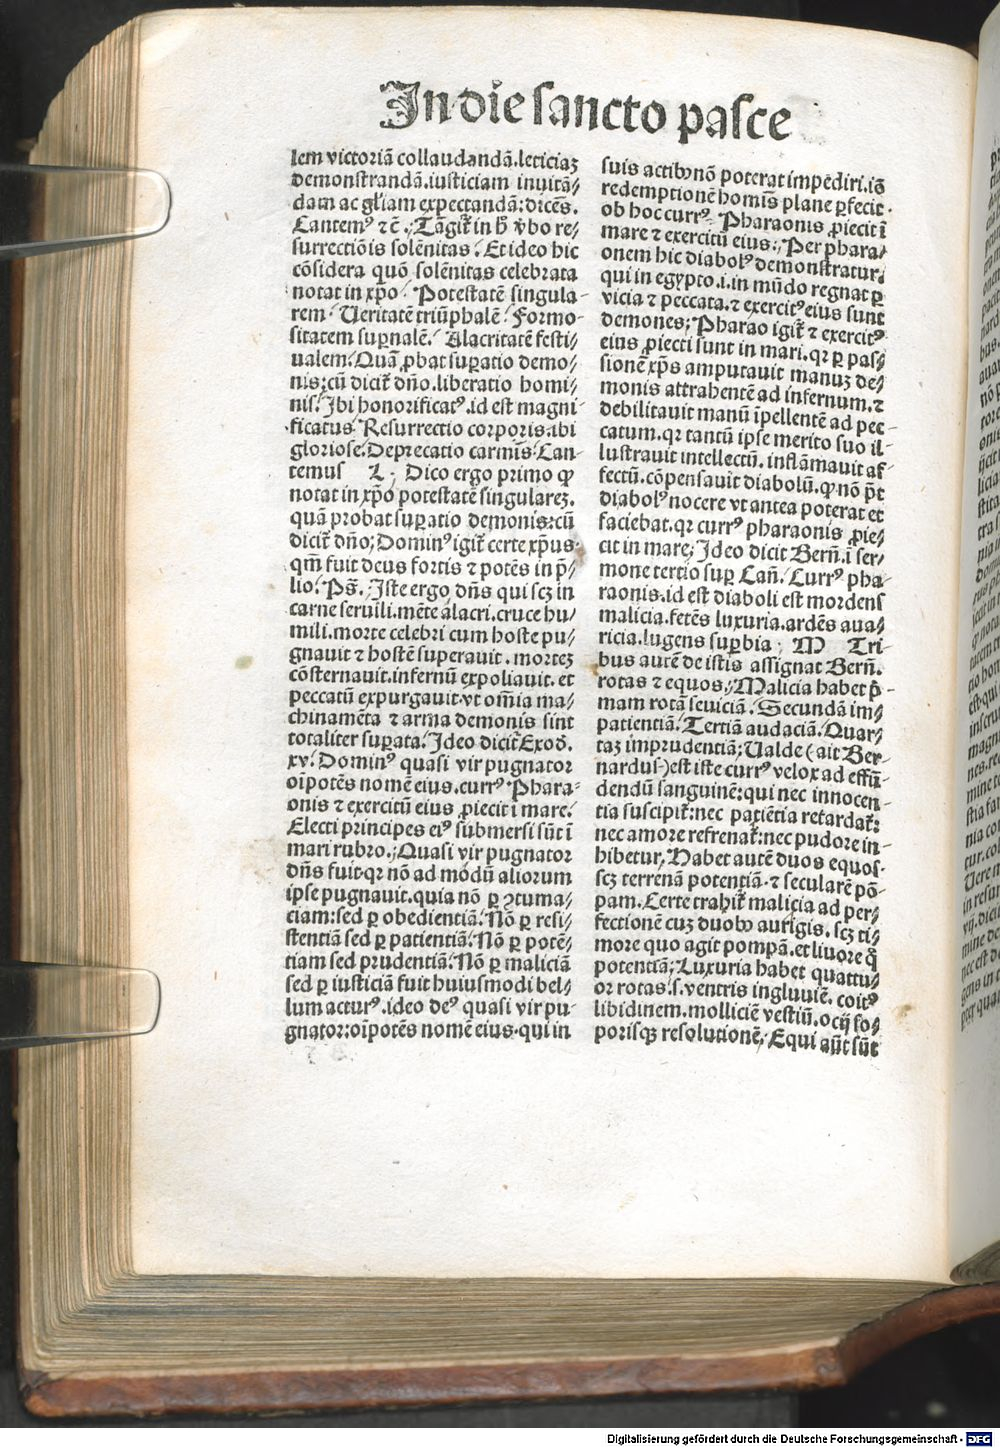 In die sancto pasce
lem victoriā collaudandā.leticiaꝫ
demonstrandā.iusticiam inuitā/
dam ac gl̄iam expectandā:dicēs.
Cantemꝰ ⁊ cē. Tāgit̄ in hͦ v̄bo re/
surrectiōis solēnitas. Et ideo hic
cōsidera quō solēnitas celebrata
notat in xp̄o. Potestatē singula-
rem. Ueritatē triūphalē. Formo-
sitatem suꝑnalē. Alacritatē festi/
ualem. Quā ꝓbat suꝑatio demo/
nis:cū dicit̄ dn̄o.liberatio homi/
nis. Ibi honorificatꝰ.id est magni-
ficatus Resurrectio corporis.ibi
gloriose. Deprecatio carmīs. Can-
temus L; Dico ergo primo ꝙ
notat in xp̄o potestatē singulareꝫ.
quā probat suꝑatio demonis:cū
dicit̄ dn̄o; Dominꝰ igit̄ certe xp̄us
qm̄ fuit deus fortis ⁊ potēs in p̄/
lio. Ps̄. Iste ergo dn̄s qui scꝫ in
carne seruili.mēte alacri.cruce hu/
mili.morte celebri cum hoste pu/
gnauit ⁊ hostē superauit. morteꝫ
cōsternauit.infernū expoliauit.et
peccatū expurgauit.vt om̄ia ma/
chinamēta ⁊ arma demonis sint
totaliter suꝑata. Ideo dicit̄ Exod.
xv. Dominꝰ quasi vir pugnator
oīpotēs nomē eius.currꝰ Phara-
onis ⁊ exercitū eius ꝓiecit ī mare.
Electi principes eiꝰ submersi sūt ī
mari rubro.; Quasi vir pugnator
dn̄s fuit.qꝛ nō ad modū aliorum
ipse pugnauit.quia nō ꝑ ꝯtuma/
ciam:sed ꝑ obedientiā. Nō ꝑ resi/
stentiā sed ꝑ patientiā. Nō ꝑ potē/
tiam sed prudentiā. Nō ꝑ maliciā
sed ꝑ iusticiā fuit huiusmodi bel/
lum acturꝰ.ideo deꝰ quasi vir pu-
gnator:oīpotēs nomē eius.qui in
suis actibꝰ nō poterat impēdiri.iō
redemptionē homīs plane ꝑfecit.
ob hoc currꝰ Pharaonis ꝓiecit ī
mare ⁊ exercitū eius; Per phara/
onem hic diabolꝰ demonstratur/
qui in egypto.i.in mūdo regnat ꝑ
vicia ⁊ peccata.⁊ exercitꝰ eius sunt
demones; Pharao igit̄ ⁊ exercitꝰ
eius ꝓiecti sunt in mari.qꝛ ꝑ pas/
sionē xp̄s amputauit manuꝫ de/
monis attrahentē ad infernum.⁊
debilitauit manū īpellentē ad pec-
catum.qꝛ tantū ipse merito suo il-
lustrauit intellectū.inflāmauit af-
fectū.cōpensauit diabolū.ꝙ nō p̄t
diabolꝰ nocere vt antea poterat et
faciebat.qꝛ currꝰ pharaonis ꝓie-
cit in mare; Ideo dicit Bern̄.ī ser-
mone tertio suꝑ Can̄. Currꝰ pha-
raonis.id est diaboli est mordens
malicia.fetēs luxuria.ardēs aua/
ricia.lugens suꝑbia; M Tri-
bus autē de istis assignat Bern̄.
rotas ⁊ equos; Malicia habet p̄-
mam rotā seuiciā. Secundā im/
patientiā. Tertiā audaciā. Quar-
taꝫ imprudentiā; Ualde (ait Ber-
nardus) est iste currꝰ velox ad effū-
dendū sanguinē:qui nec innocen-
tia suscipit̄:nec patiētia retardat̄:
nec amore refrenat̄:nec pudore in-
hibetur, Habet autē duos equos.
scꝫ terrenā potentiā.⁊ secularē pō-
pam. Certe trahit̄ malicia ad per/
fectionē cuꝫ duobꝰ aurigis.scꝫ ti/
more quo agit pompā.et liuore q̄
potentiā; Luxuria habet quattu/
or rotas.s.ventris ingluuiē.coitꝰ
libidinem.molliciē vestiū.ocij so/
porisqꝫ resolutionē. Equi aūt sūt
Digitalisierung gefördert durch die Deutsche Forschungsgemeinschaft - DFG